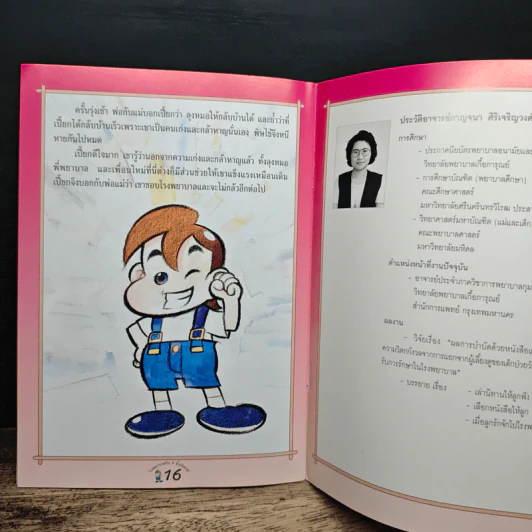 ครั้นรุ่งเช้า พ่อกับแม่บอกเปี๊ยกว่า ลุงหมอให้กลับบ้านได้ และย้ำว่าที่
เปี๊ยกได้กลับบ้านเร็วเพราะเขาเป็นคนเก่งและกล้าหาญนั่นเอง พิษไข้จึงหนี
หายกันไปหมด
เปี๊ยกดีใจมาก เขารู้ว่านอกจากความเก่งและกล้าหาญแล้ว ทั้งลุงหมอ
พี่พยาบาล และเพื่อนใหม่ที่นี่ต่างก็มีส่วนช่วยให้เขาแข็งแรงเหมือนเดิม
เปี๊ยกจึงบอกกับพ่อแม่ว่า เขาชอบโรงพยาบาลและจะไม่กลัวอีกต่อไป
16
ประวัติอาจารย์กาญจนา ศิริเจริญวงศ์
การศึกษา
- ประกาศนียบัตรพยาบาลอนามัยและ
วิทยาลัยพยาบาลเกื้อการุณย์
- การศึกษาบัณฑิต (พยาบาลศึกษา)
คณะศึกษาศาสตร์
มหาวิทยาลัยศรีนครินทรวิโรฒ ประสา
- วิทยาศาสตร์มหาบัณฑิต (แม่และเด็ก
คณะพยาบาลศาสตร์
มหาวิทยาลัยมหิดล
ตำแหน่งหน้าที่งานปัจจุบัน
- อาจารย์ประจำภาควิชาการพยาบาลกุม
วิทยาลัยพยาบาลเกื้อการุณย์
สำนักการแพทย์ กรุงเทพมหานคร
ผลงาน
- วิจัยเรื่อง "ผลการบำบัดด้วยหนังสือ
ความวิตกกังวลจากการแยกจากผู้เลี้ยงดูของเด็กป่วยวั
รับการรักษาในโรงพยาบาล"
- บรรยาย เรื่อง - เล่านิทานให้ลูกฟัง
- เลือกหนังสือให้ลูก
- เมื่อลูกรักจักไปโรงพ